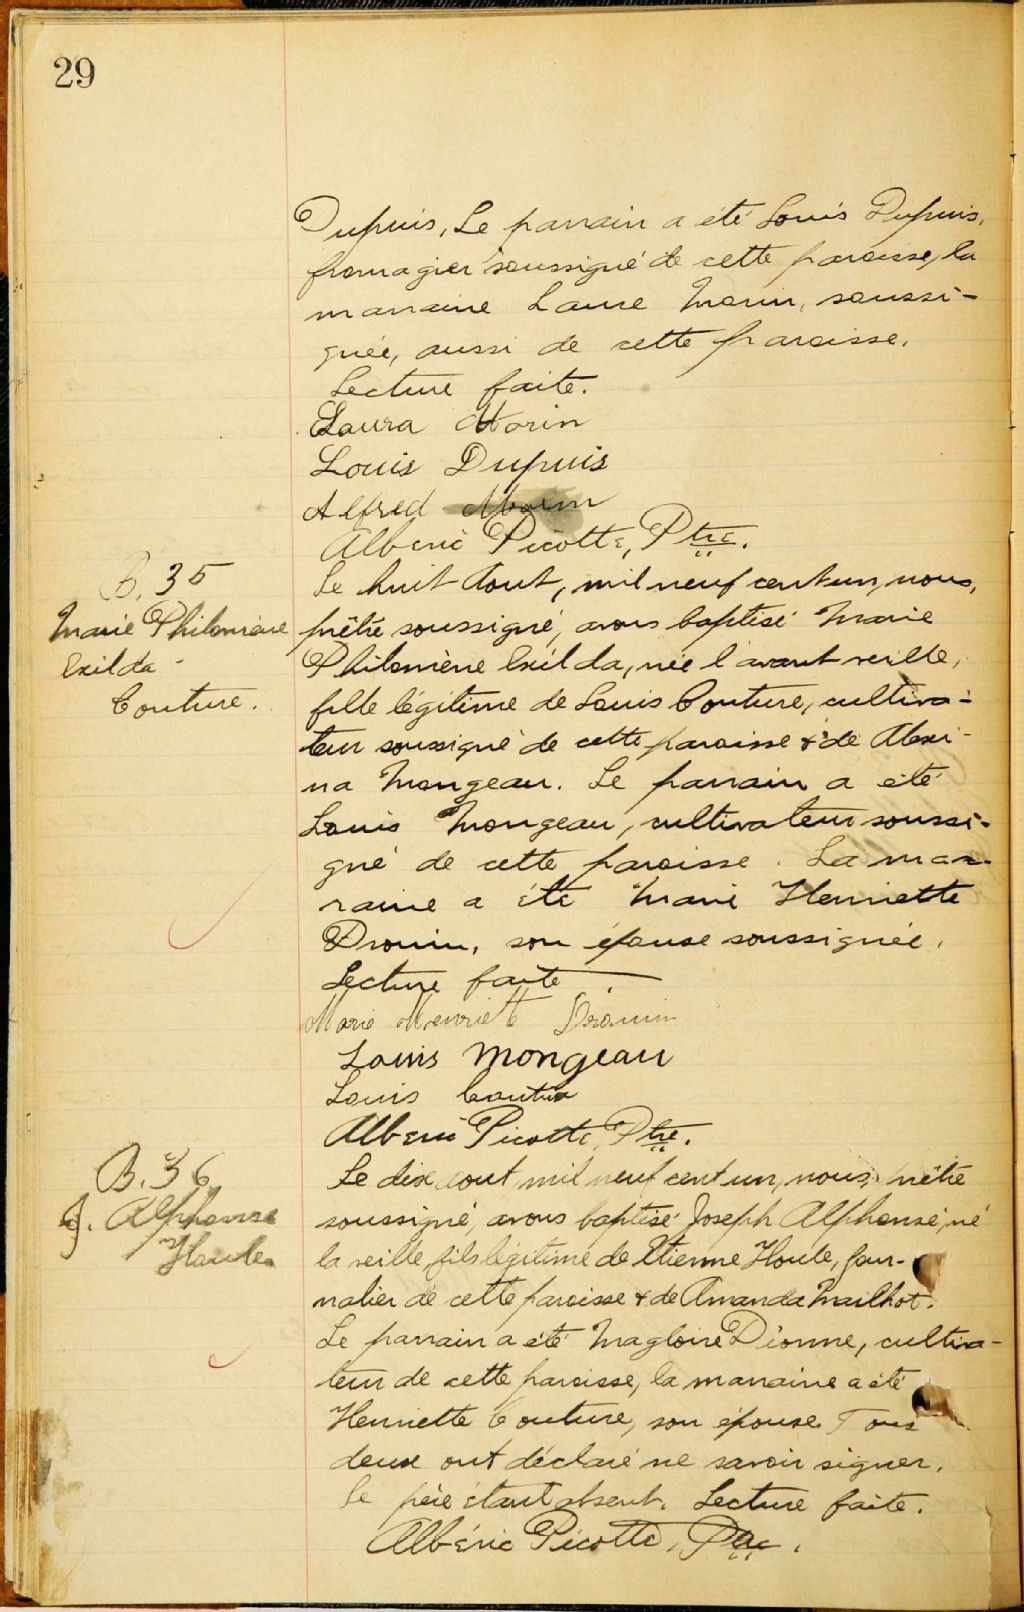 29
Dupuis, Le parrain a été Louis Dupuis,
fromagier soussigné de cette paroisse, la
marraine Laure Morin, soussi-
gnée, aussi de cette paroisse.
Lecture faite.
Laura Morin
Louis Dupuis
Alfred Morin
Albéric Picotte, Ptre.
B. 35
Marie Philomène
Exilda
Couture.
Le huit Aout, mil neuf cent un, nous,
prêtre soussigné, avons baptisé Marie
Philomène Exilda, née l'avant veille,
fille légitime de Louis Couture, cultiva-
teur soussigné de cette paroisse & de Alexi-
na Mongeau. Le parrain a été
Louis Mongeau, cultivateur soussi-
gné de cette paroisse. La mar-
raine a été Marie Henriette
Drouin, son épouse soussignée.
Lecture faite
Marie Henriette Drouin
Louis Mongeau
Louis Coutur
Albéric Picotte, Ptre.
B. 36
J. Alphonse
Houle
Le dix aout mil neuf cent un, nous, prêtre
soussigné, avons baptisé Joseph Alphonse, né
la veille, fils légitime de Etienne Houle, jour-
nalier de cette paroisse & de Amanda Mailhot.
Le parrain a été Magloire Dionne, cultiva-
teur de cette paroisse, la marraine a été
Henriette Couture, son épouse. Tous
deux ont déclaré ne savoir signer.
Le père étant absent. Lecture faite.
Albéric Picotte, Ptre.